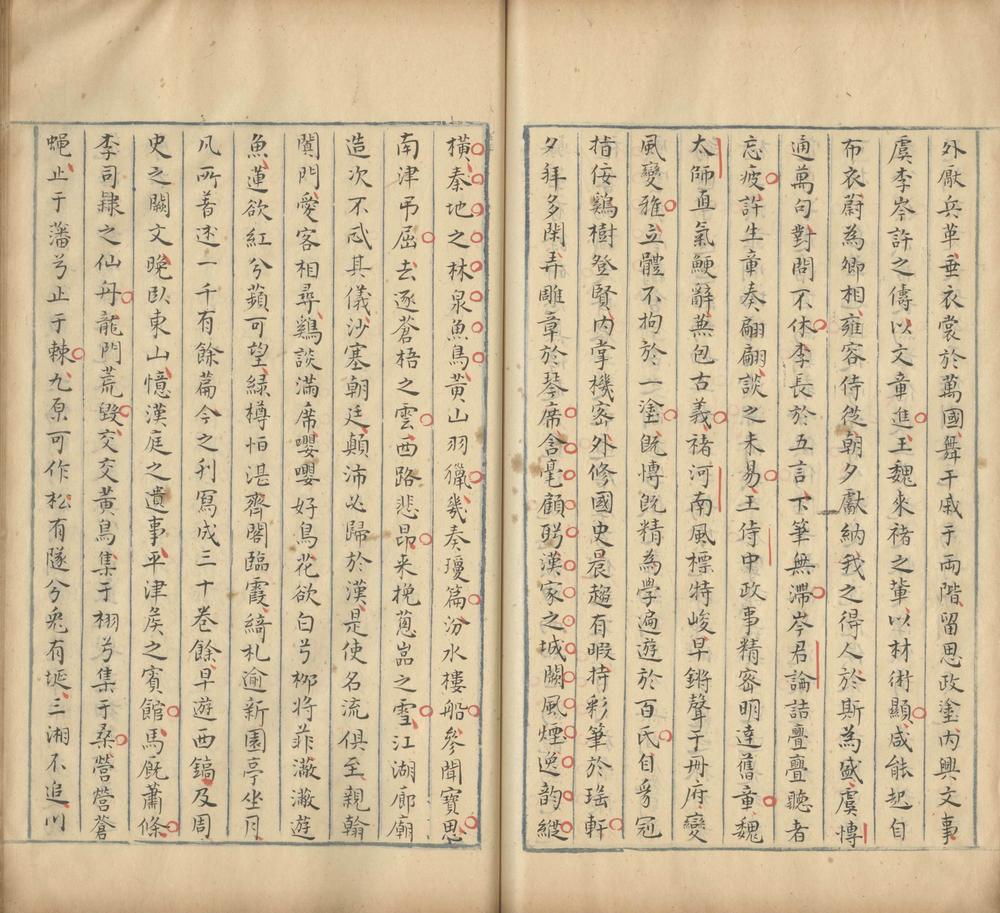 外厭兵革垂衣裳於萬國舞干戚于両階留思政塗內興文事
虞李岑許之儔以文章進王魏來褚之輩以材術顯咸能起自
布衣蔚為卿相雍容侍從朝夕獻納我之得人於斯為盛虞博
通萬句對問不休李長於五言下筆無滯岑君論詰亹亹聽者
忘疲許生章奏翩翩談之未易王侍中政事精密明達舊章魏
太師直氣鯁辭兼包古義褚河南風標特峻早鏘聲于冊府變
風變雅立體不拘於一塗既博既精為學遍遊於百氏自爰冠
指佞鷄樹登賢內掌機密外修國史晨趨有暇持彩筆於瑶軒
夕拜多閑弄雕章於琴席含毫顧眄漢家之城闕風煙逸韵縱
橫秦地之林泉魚鳥黃山羽獵幾奏瓊篇汾水樓船參聞寶思
南津弔屈去逐蒼梧之雲西路悲昂来挽蔥嵓之雪江湖廊廟
造次不忒其儀沙塞朝廷顛沛必歸於漢是使名流俱至親翰
闐門愛客相尋鷄談滿席嚶嚶好鳥花欲白兮栁將菲澉澉遊
魚蓮欲紅兮蘋可望緑樽怕湛齊閣臨霞綺札逾新園亭坐月
凡所著述一千有餘篇今之刋寫成三十卷餘早遊西鎬及周
史之闕文晚臥東山憶漢庭之遺事平津矦之賓館馬厩蕭條
李司隸之仙舟龍門荒毀交交黃鳥集于栩兮集于桑營營蒼
蝇止于藩兮止于棘九原可作松有隧兮兔有埏三湘不追川